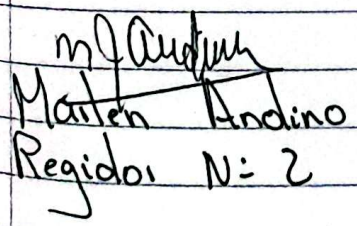 Marlen Andino
Regidor N: 2